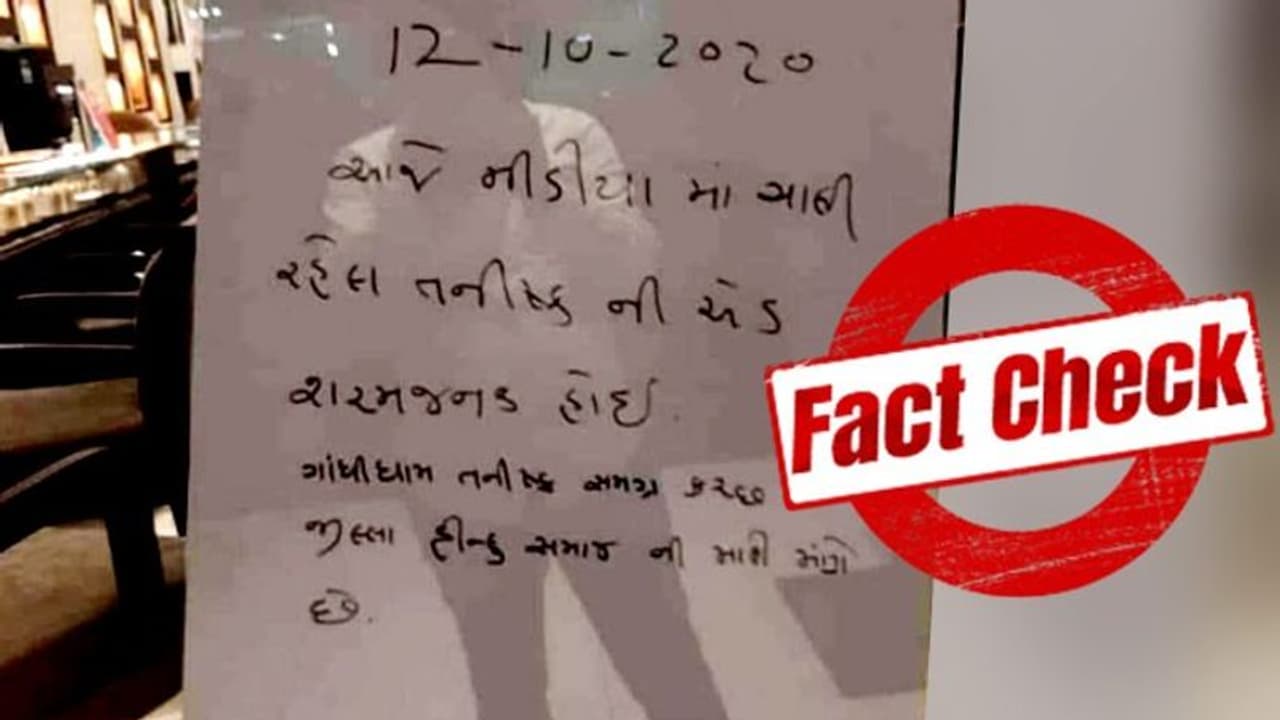 12-10-2020
આજે મીડીયા માં ચાલી
રહેલ તનીષ્ક ની એડ
શરમજનક હોઈ.
ગાંધીધામ તનીષ્ક સમગ્ર કચ્છ
જીલ્લા હીન્દુ સમાજ ની માફી માંગે
છે.
Fact Check